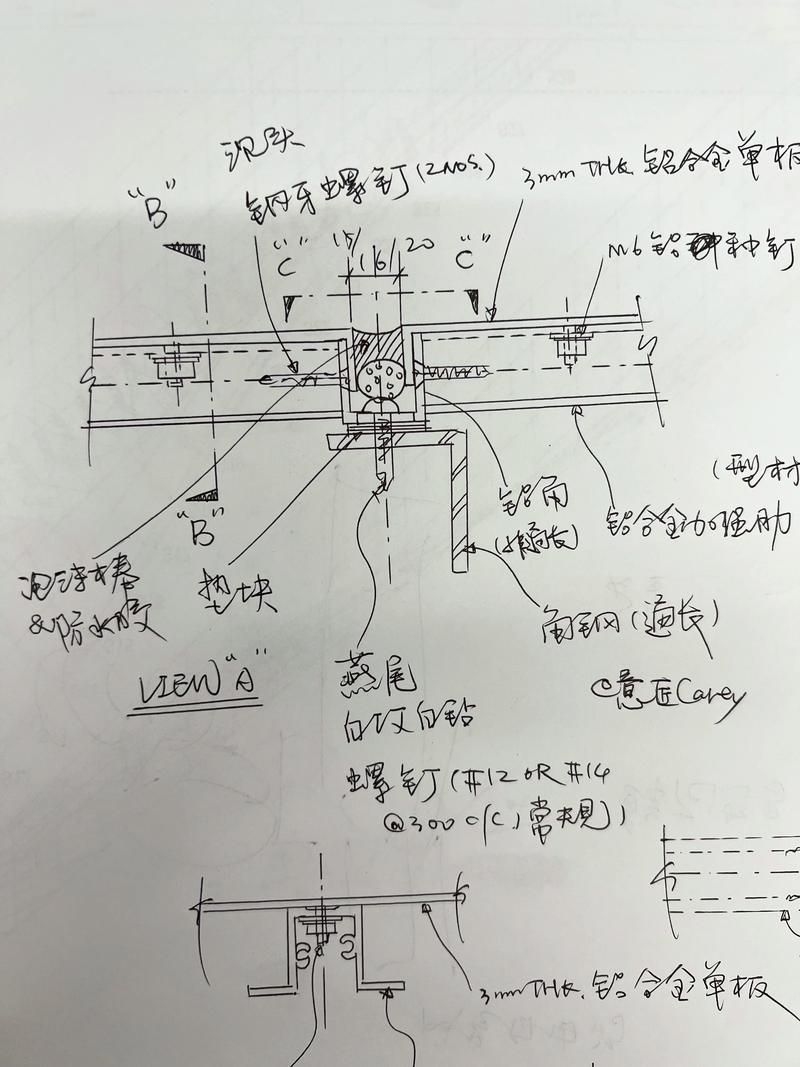 沉头
钢牙螺钉(2NOS.)
3mm THK. 铝合金单板
"B"
"C"
15/
16/
20
"C"
M6铝种钉
铝角
(非通长)
(型材
铝合金加强肋
泡沫棒
&防水胶
垫块
"B"
角钢(通长)
VIEW "A"
燕尾
自攻自钻
螺钉(#12 OR #14
@300 c/c,常规)
©意匠Carey
3mm THK. 铝合金单板